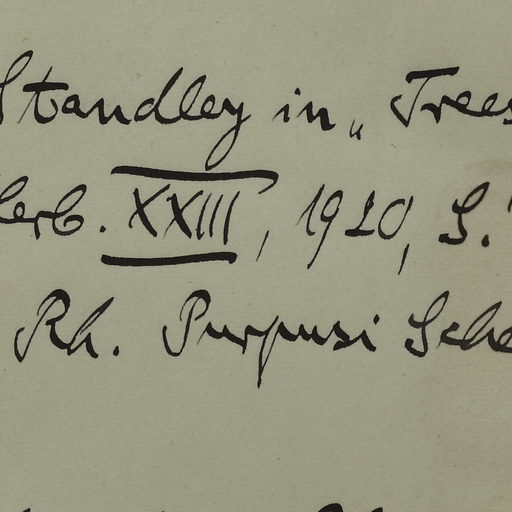 Standley in „Trees
Herb. XXIII, 1920, S.
Rh. Purpusi Sche